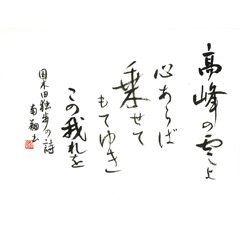 高峰の雲よ
心あらば
乗せて
もてゆき
この我れを
国木田独歩の詩